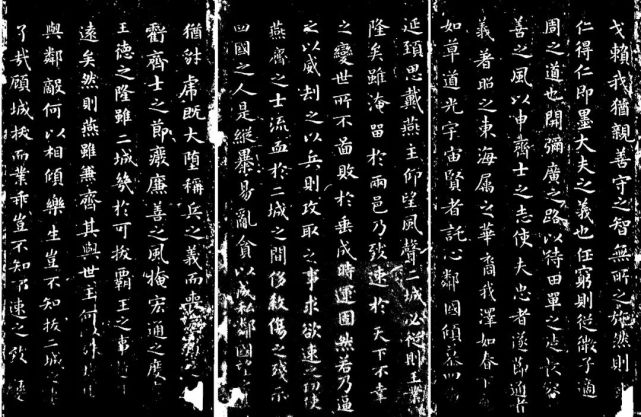 戈賴我猶親善守之智無所之施然則
仁得仁即墨大夫之義也任窮則從微子適
周之道也開彌廣之路以待田單之徒長容
善之風以申齊士之志使夫忠者遂節通者
義著昭之東海屬之華裔我澤如春下
如草道光宇宙賢者託心鄰國傾慕四
延頸思戴燕主仰望風聲二城必從則王業
隆矣雖淹留於兩邑乃致速於天下不幸
之變世所不圖敗於垂成時運固然若乃逼
之以威劫之以兵則攻取之事求欲速之功使
燕齊之士流血於二城之間侈殺傷之殘示
四國之人是縱暴易亂貪以成私鄰國
猶豺虎既大墮稱兵之義而喪
虧齊士之節廢廉善之風掩宏通之度
王德之隆雖二城幾於可拔霸王之事
遠矣然則燕雖兼齊其與世主何以殊
與鄰敵何以相傾樂生豈不知拔二城之
了哉顧城拔而業乖豈不知不速之致變